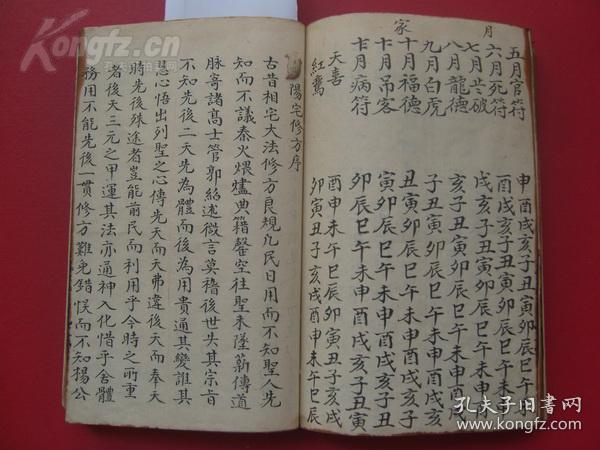 月
家
五月官符 申酉戌亥子丑寅卯辰巳午未
六月死符 酉戌亥子丑寅卯辰巳午未申
七月歲破 戌亥子丑寅卯辰巳午未申酉
八月龍德 亥子丑寅卯辰巳午未申酉戌
九月白虎 子丑寅卯辰巳午未申酉戌亥
十月福德 丑寅卯辰巳午未申酉戌亥子
十月吊客 寅卯辰巳午未申酉戌亥子丑
十月病符 卯辰巳午未申酉戌亥子丑寅
天喜 酉申未午巳辰卯寅丑子亥戌
紅鸞 卯寅丑子亥戌酉申未午巳辰
陽宅修方序
古昔相宅大法修方良規凢民日用而不知聖人先
知而不議秦火煨燼典籍罄空徃聖未墜薪傳道
脉寄諸髙士管郭紹述微言莫稽後世失其宗旨
不知先後二天先為體而後為用貴通其變誰其
慧心悟出列聖之心傳先天而天弗違後天而奉天
時先後殊途者豈能前民而利用乎今時之所重
者後天三元之甲運其法亦通神入化惜乎舍體
務用不能先後一貫修方難免錯悮而不知楊公
Kongfz.com
中国最大的
孔夫子旧书网
www.kongfz.com